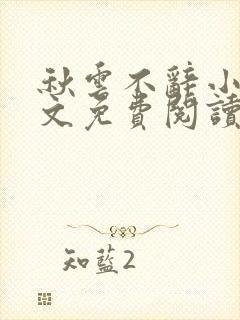 秋雲不辭小
文免費閱讀
知藍2